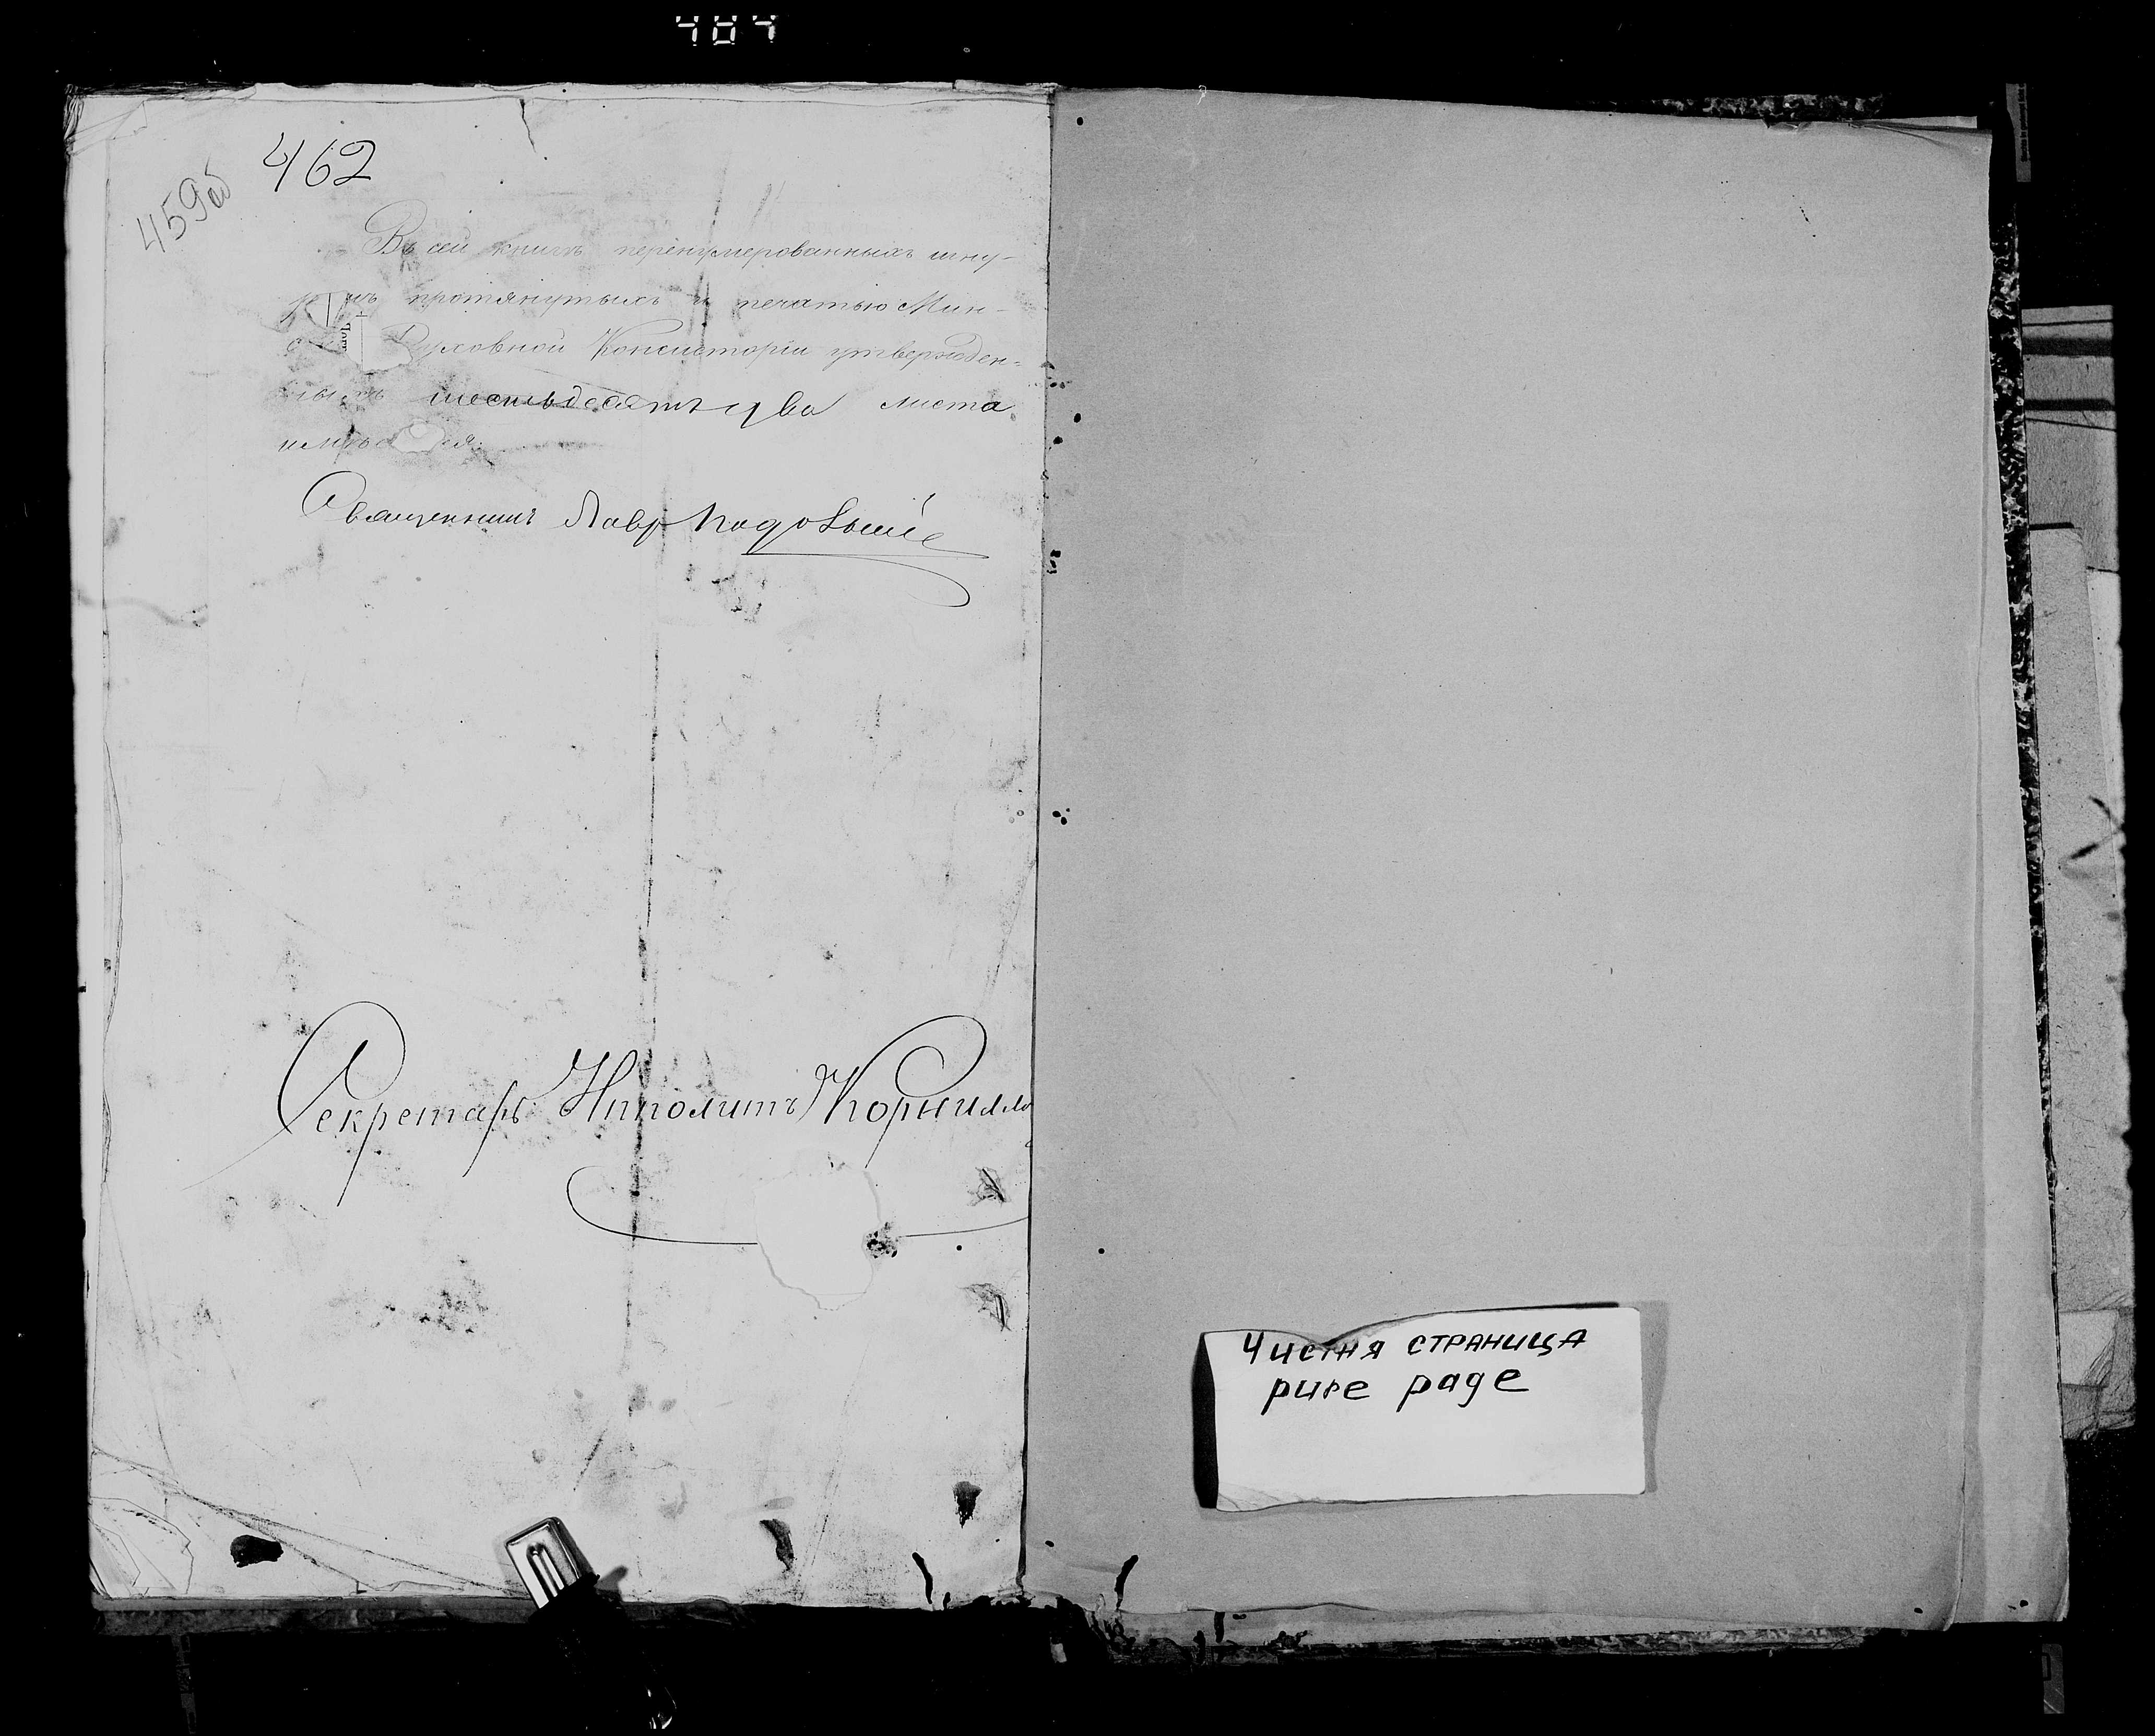 462
459об
Въ сей книгѣ перенумерованныхъ шну-
протянутыхъ и печатью Мин-
Духовной Консисторіи утвержден-
ныхъ шестьдесятъ два листа
Священникъ Лавр
Секретарь Ипполитъ Корнилло
Чистая страница
pure page